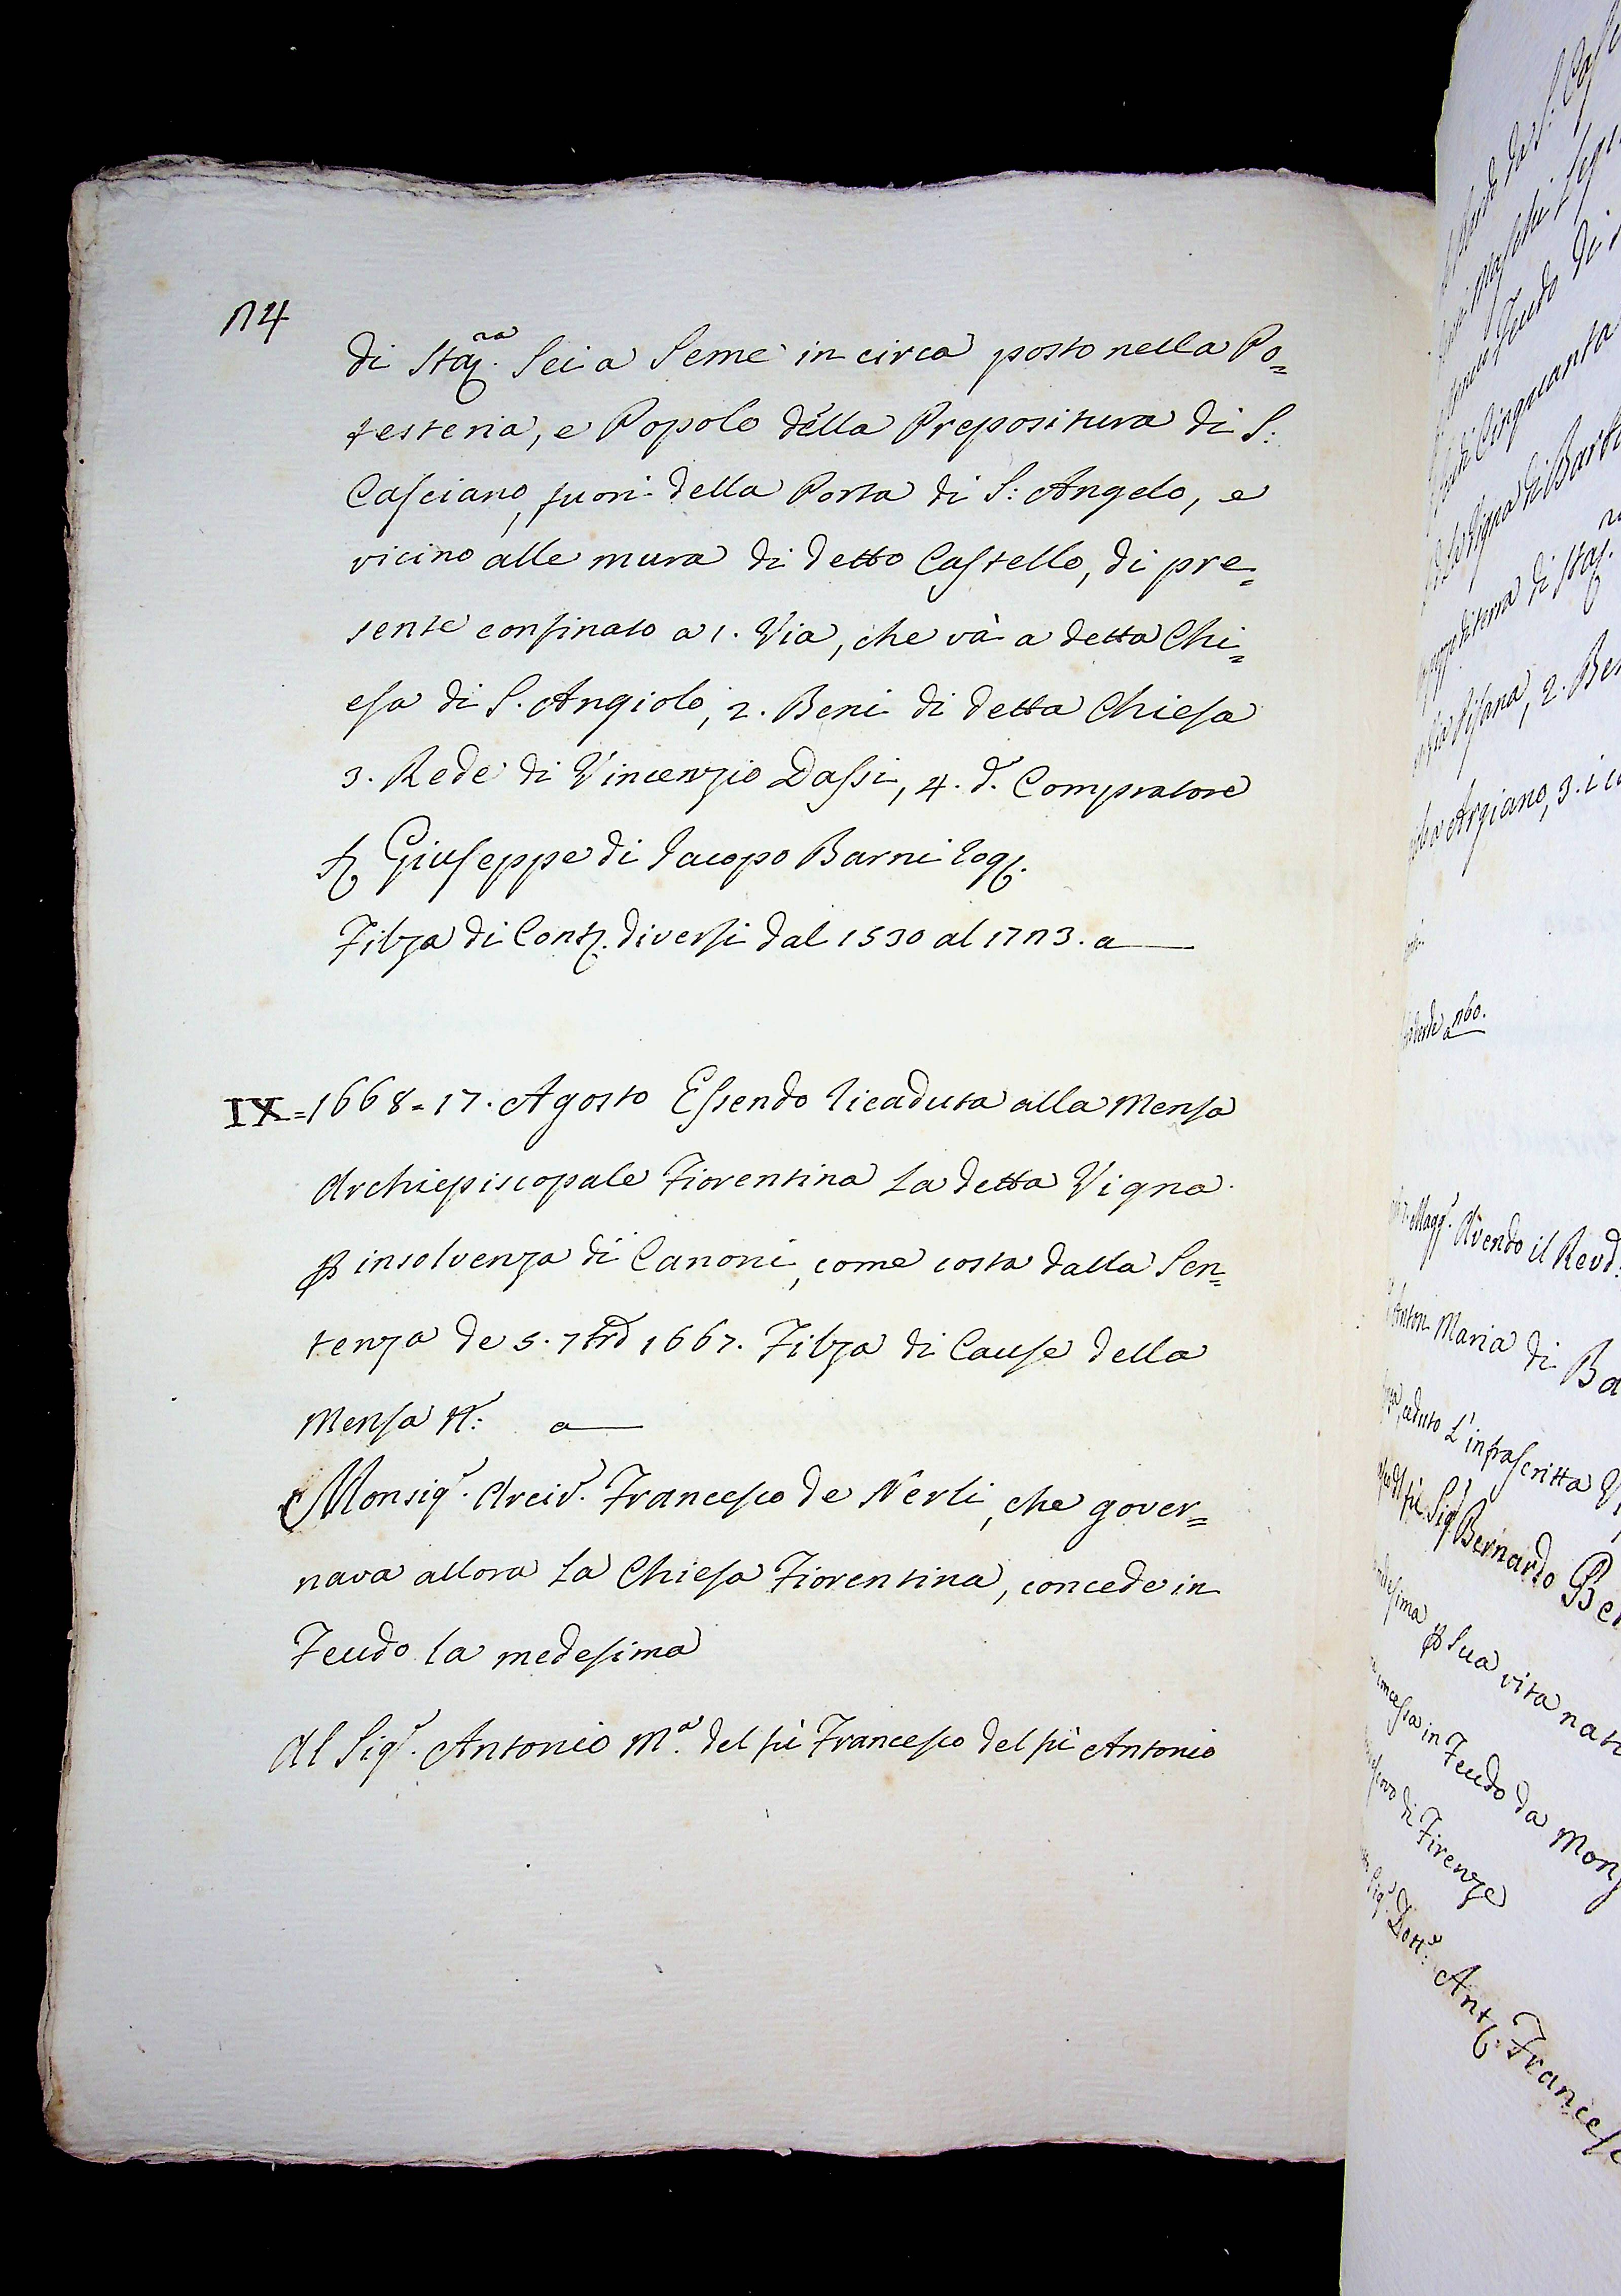 74
di Staj.ra Sei a Seme in circa posto nella Po=
testeria, e Popolo della Prepositura di S:
Casciano, fuori della Porta di S: Angelo, e
vicino alle mura di detto Castello, di pre=
sente confinato a 1. Via, che và a detta Chi=
esa di S. Angiolo, 2. Beni di detta Chiesa
3. Rede di Vincenzio Dassi, 4. d.o Compratore
Giuseppe di Iacopo Barni rog.
Filza di Cont. diversi dal 1530 al 1773. a
IX = 1668 = 17. Agosto Essendo ricaduta alla Mensa
Archiepiscopale Fiorentina La detta Vigna
p insolvenza di Canoni, come costa dalla Sen=
tenza de 5. 7bre 1667. Filza di Cause della
Mensa N: a
Monsig.r Arciv.o Francesco de Nerli, che gover=
nava allora La Chiesa Fiorentina, concede in
Feudo la medesima
Al Sig.r Antonio M.a del fù Francesco del fù Antonio
Feudo di
Cinquanta
di terra di Staj.
Via Pisana, 2. Be
Argiano, 3. i
a 760.
Magg.o Avendo il Revd.
Anton Maria di Ba
ceduto L'infrascritta
Sig.r Bernardo Be
p Sua vita nat
concessa in Feudo da Mon
di Firenze
Sig.r Dott.e Ant. Frances